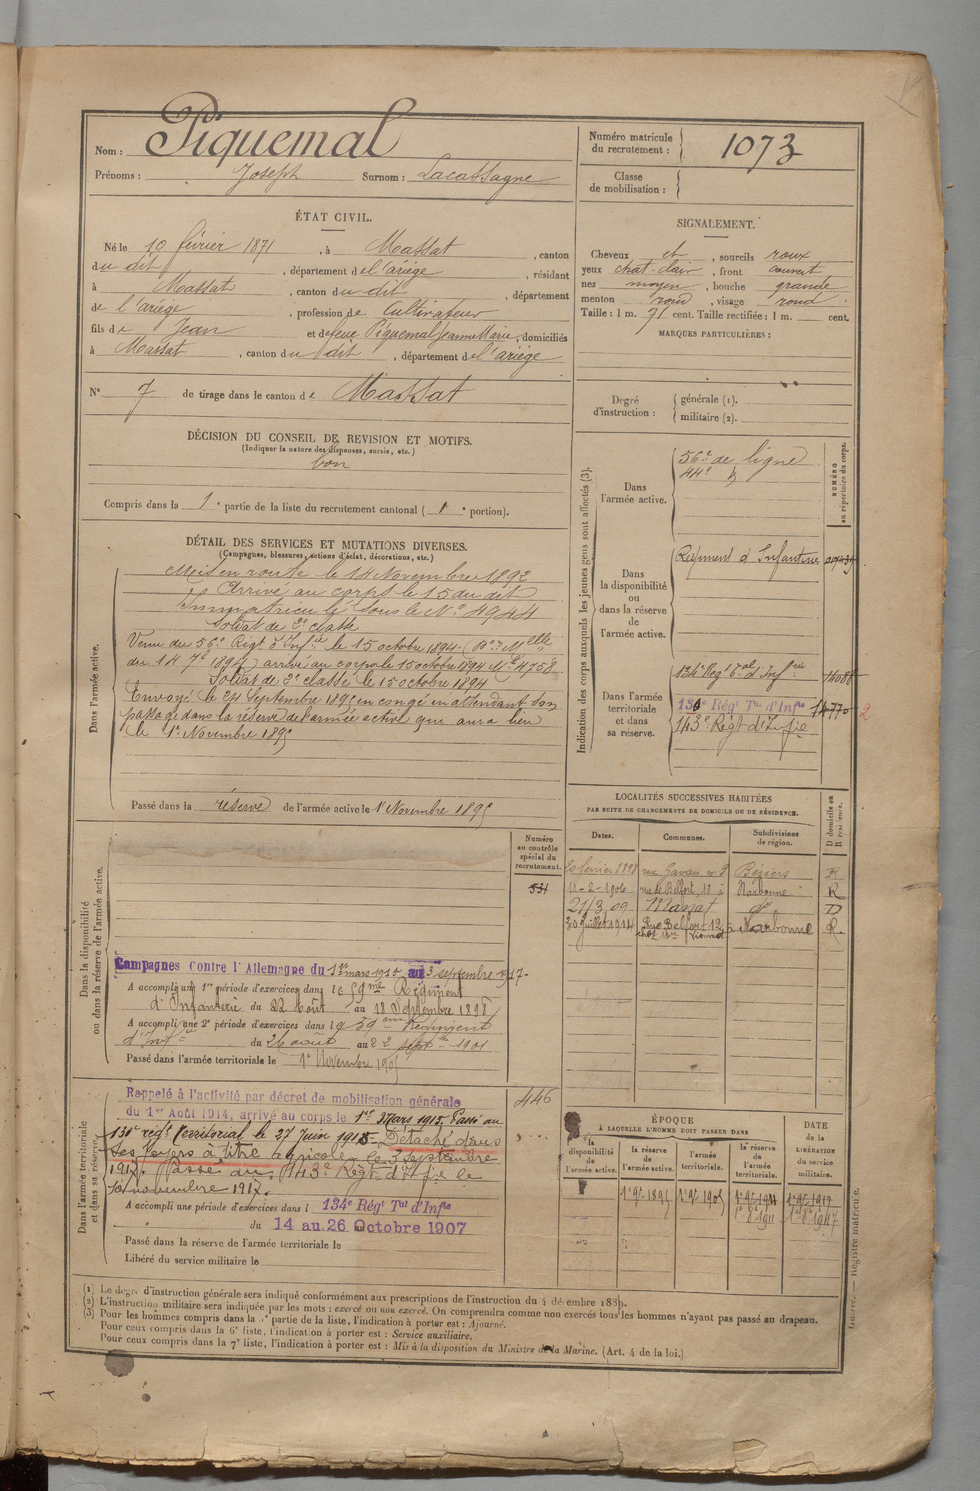 Nom : Piquemal
Prénoms : Joseph Surnom : Lacassagne
Numéro matricule du recrutement : 1073
Classe de mobilisation :
ÉTAT CIVIL.
Né le 10 février 1871, à Massat, canton
du dit, département de l'ariège, résidant
à Massat, canton du dit, département
de l'ariège, profession de Cultivateur
fils de Jean et de feue Piquemal Jeanne Marie, domiciliés
à Massat, canton du dit, département de l'ariège
N° 7 de tirage dans le canton de Massat
SIGNALEMENT.
Cheveux et, sourcils roux
yeux chat. clair, front couvert
nez moyen, bouche grande
menton rond, visage rond.
Taille : 1 m. 71 cent. Taille rectifiée : 1 m. cent.
MARQUES PARTICULIÈRES :
Degré d'instruction : générale (1).
militaire (2).
DÉCISION DU CONSEIL DE REVISION ET MOTIFS.
(Indiquer la nature des dispenses, sursis, etc.)
bon
Compris dans la 1e partie de la liste du recrutement cantonal ( 1e portion).
DÉTAIL DES SERVICES ET MUTATIONS DIVERSES.
(Campagnes, blessures, actions d'éclat, décorations, etc.)
Dans l'armée active.
Mis en route le 14 Novembre 1892
Arrivé au corps le 15 du dit
Immatriculé sous le N° 4944
Soldat de 2e classe
Venu du 56e Régt d'Infie le 15 octobre 1894. (Don Melle
du 14 7e 1894) arrivé au corps le 15 octobre 1894 Mle 4758
Soldat de 2e classe le 15 octobre 1894
Envoyé le 24 Septembre 1895 en congé en attendant son
passage dans la réserve de l'armée active qui aura lieu
le 1er Novembre 1895
Passé dans la réserve de l'armée active le 1er Novembre 1895
Indication des corps auxquels les jeunes gens sont affectés (3).
NUMÉRO au répertoire du corps.
Dans l'armée active.
56e de ligne
44e
Dans la disponibilité ou dans la réserve de l'armée active.
Régiment d'Infanterie
Dans l'armée territoriale et dans sa réserve.
134e Régt Tal d'Infrie 14088
134e Régt Tal d'Infie 14770 2
143e Régt d'Infie
LOCALITÉS SUCCESSIVES HABITÉES
PAR SUITE DE CHANGEMENTS DE DOMICILE OU DE RÉSIDENCE.
Dates. Communes. Subdivisions de région. D domicile ou R résidence.
rue Béziers R
11-2-1906 rue de Belfort, 10 à Narbonne R
21/3 09 Massat D
20 juillet 1914 Rue Belfort 12 à Narbonne R.
Numéro au contrôle spécial du recrutement.
531
Dans la disponibilité ou dans la réserve de l'armée active.
Campagnes Contre l'Allemagne du 1er mars 1915 au 3 septembre 1917.
A accompli une 1re période d'exercices dans le 59me Régiment
d'Infanterie du 22 Août au 18 Septembre 1898
A accompli une 2e période d'exercices dans le 59em Régiment
d'Infie du 26 août au 22 septbre 1901
Passé dans l'armée territoriale le 1er Novembre 1905
Dans l'armée territoriale et dans sa réserve.
446
Rappelé à l'activité par décret de mobilisation générale
du 1er Août 1914, arrivé au corps le 1er Mars 1915. Passé au
131e régt Territorial le 27 Juin 1915. Détaché dans
ses foyers à titre agricole le 3 septembre
1917. Passé au 143e Régt d'Infie le
10 novembre 1917.
A accompli une période d'exercices dans l 134e Régt Tal d'Infie
du 14 au 26 Octobre 1907
Passé dans la réserve de l'armée territoriale le
Libéré du service militaire le
ÉPOQUE
A LAQUELLE L'HOMME DOIT PASSER DANS
DATE de la LIBÉRATION du service militaire.
la disponibilité de l'armée active.
la réserve de l'armée active.
l'armée territoriale.
la réserve de l'armée territoriale.
1er 9e 1895 1er 9e 1905 1er 9e 1911 1er 9e 1917
1er 8e 1911 1er 8e 1917
(1) Le degré d'instruction générale sera indiqué conformément aux prescriptions de l'instruction du 4 décembre 1889.
(2) L'instruction militaire sera indiquée par les mots : exercé ou non exercé. On comprendra comme non exercés tous les hommes n'ayant pas passé au drapeau.
(3) Pour les hommes compris dans la 5e partie de la liste, l'indication à porter est : Ajourné.
Pour ceux compris dans la 6e liste, l'indication à porter est : Service auxiliaire.
Pour ceux compris dans la 7e liste, l'indication à porter est : Mis à la disposition du Ministre de la Marine. (Art. 4 de la loi.)
Registre matricule.